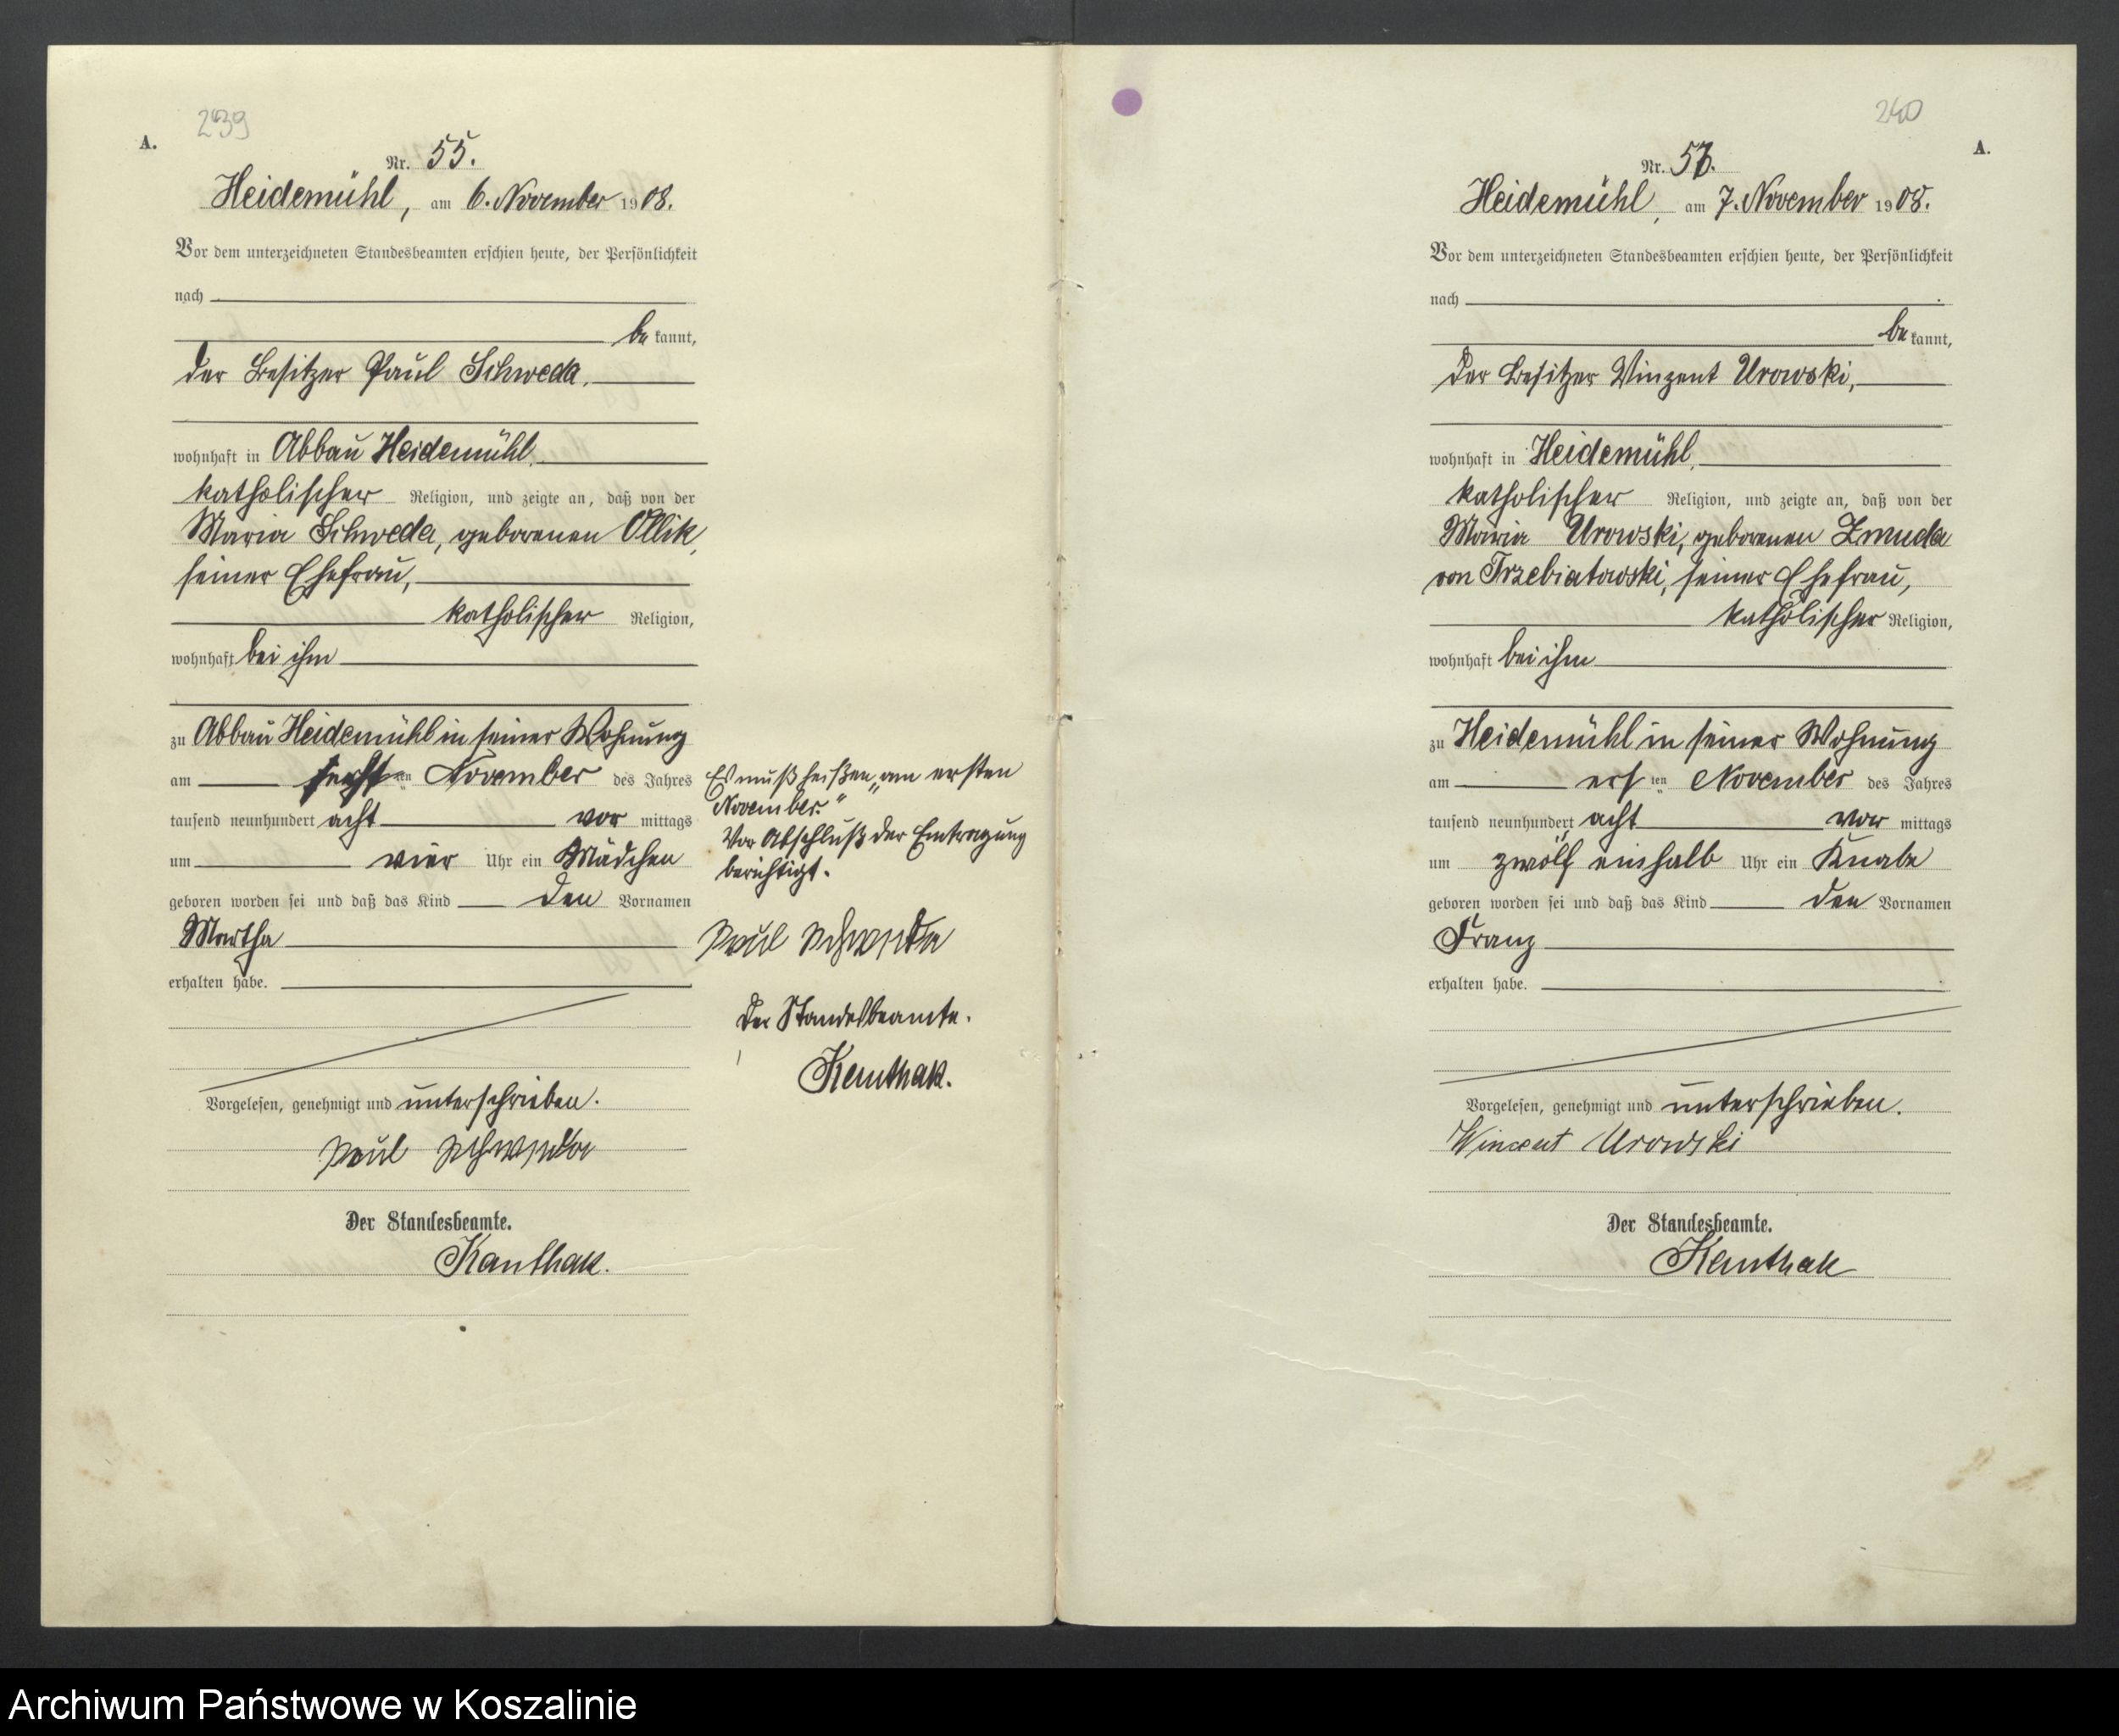 239
A.
Nr. 55.
Heidemühl, am 6. November 1908.
Vor dem unterzeichneten Standesbeamten erschien heute, der Persönlichkeit
nach
be kannt,
der Besitzer Paul Schweda,
wohnhaft in Abbau Heidemühl,
katholischer Religion, und zeigte an, daß von der
Maria Schweda, geborenen Ollik,
seiner Ehefrau,
katholischer Religion,
wohnhaft bei ihm
zu Abbau Heidemühl in seiner Wohnung
am ten November des Jahres
tausend neunhundert acht vor mittags
um vier Uhr ein Mädchen
geboren worden sei und daß das Kind den Vornamen
Martha
erhalten habe.
Vorgelesen, genehmigt und unterschrieben.
Paul Schweda
Der Standesbeamte.
Kanthak.
Es muß heißen „am ersten
November."
Vor Abschluß der Eintragung
berichtigt.
Paul Schweda
Der Standesbeamte.
Kanthak.
240
A.
Nr. 57.
Heidemühl, am 7. November 1908.
Vor dem unterzeichneten Standesbeamten erschien heute, der Persönlichkeit
nach
be kannt,
der Besitzer Vinzent Urowski,
wohnhaft in Heidemühl,
katholischer Religion, und zeigte an, daß von der
Maria Urowski, geborenen Zmuda
von Trzebiatowski, seiner Ehefrau,
katholischer Religion,
wohnhaft bei ihm
zu Heidemühl in seiner Wohnung
am ers ten November des Jahres
tausend neunhundert acht vor mittags
um zwölf einhalb Uhr ein Knabe
geboren worden sei und daß das Kind den Vornamen
Franz
erhalten habe.
Vorgelesen, genehmigt und unterschrieben.
Wincent Urowski
Der Standesbeamte.
Kanthak
Archiwum Państwowe w Koszalinie